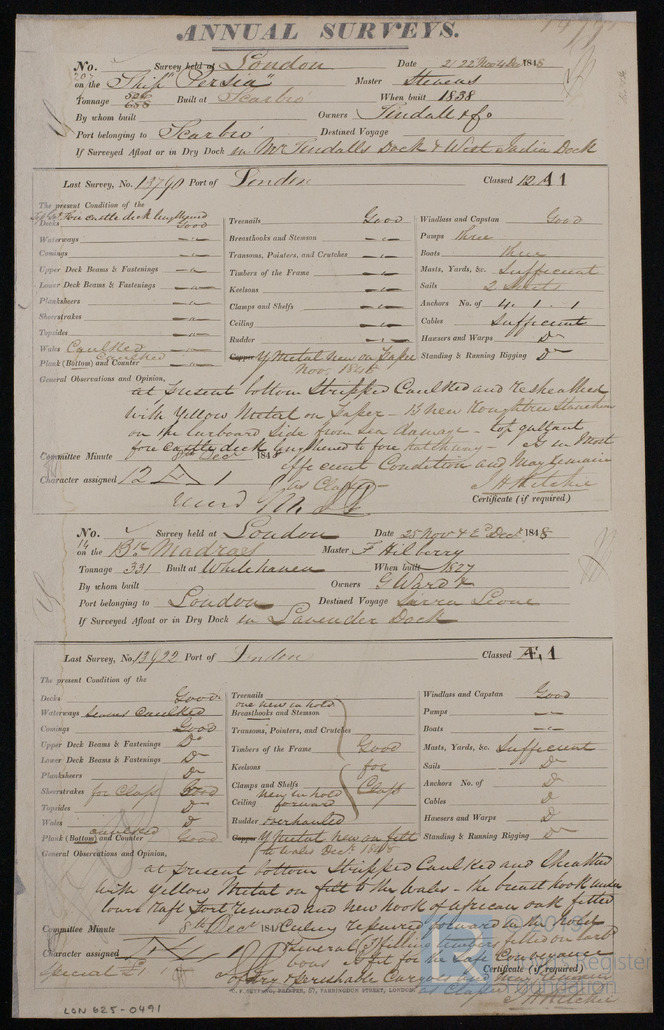 ANNUAL SURVEYS.
No. Survey held at London Date 21 22 Nov 4 Dec 1848
on the Ship "Persia" Master Stevens
Tonnage 658 Built at Scarbro' When built 1838
By whom built Owners Tindall & Co
Port belonging to Scarbro' Destined Voyage
If Surveyed Afloat or in Dry Dock in Mr Tindalls Dock & West India Dock
Last Survey, No. 13790 Port of London Classed 12 A 1
The present Condition of the
Fore castle deck lengthened
Decks Good
Waterways
Comings
Upper Deck Beams & Fastenings
Lower Deck Beams & Fastenings
Planksheers
Sheerstrakes
Topsides
Wales Caulked
Plank (Bottom) and Counter Caulked
Treenails Good
Breasthooks and Stemson
Transoms, Pointers, and Crutches
Timbers of the Frame
Keelsons
Clamps and Shelfs
Ceiling
Rudder
Copper Y Metal new on Paper
Nov. 1848
Windlass and Capstan Good
Pumps three
Boats three
Masts, Yards, &c. Sufficient
Sails 2 Suits
Anchors No. of 4. 1. 1
Cables Sufficient
Hawsers and Warps Do
Standing & Running Rigging Do
General Observations and Opinion,
at present bottom Stripped Caulked and resheathed
with Yellow Metal on Paper - 13 new Roughtree Stanchion
on the larboard side from Sea damage - top gallant
fore castle deck lengthened to fore hatchway - is in Most
Committee Minute Decr 1848 efficient Condition and May remain
Character assigned 12 A 1 as Classed J H Ritchie
Certificate (if required)
No. Survey held at London Date 25 Nov & 2d Decr 1848
14
on the Bk Madras Master F Hilberry
Tonnage 331 Built at Whitehaven When built 1827
By whom built Owners G Ward &
Port belonging to London Destined Voyage Sierra Leone
If Surveyed Afloat or in Dry Dock in Lavender Dock
Last Survey, No. 13922 Port of London Classed Æ, 1
The present Condition of the
Decks Good
Waterways Seams Caulked
Comings Good
Upper Deck Beams & Fastenings Do
Lower Deck Beams & Fastenings Do
Planksheers Do
Sheerstrakes for Class Good
Topsides Do
Wales Do
Plank (Bottom) and Counter caulked Good
Treenails
one new in hold
Breasthooks and Stemson
Transoms, Pointers, and Crutches
Timbers of the Frame Good
Keelsons for
Clamps and Shelfs Class
new in hold
Ceiling forward
Rudder overhauled
Copper Y Metal new on felt
to wales Decr 1848
Windlass and Capstan Good
Pumps
Boats
Masts, Yards, &c. Sufficient
Sails Do
Anchors No. of Do
Cables Do
Hawsers and Warps Do
Standing & Running Rigging Do
General Observations and Opinion,
at present bottom Stripped Caulked and Sheathed
with Yellow Metal on felt to the Wales - the breast hook under
lower Raft Port removed and new hook of African oak fitted
Committee Minute 8th Decr 1848 Ceiling repaired forward in the hold
Character assigned Æ 1 Several filling timbers fitted on larbd
bows is fit for the Safe Conveyance
Special
of Dry & perishable Cargoes and may remain
Certificate (if required)
as Classed
J H Ritchie
LON 625-0491
Lloyd's Register
Foundation